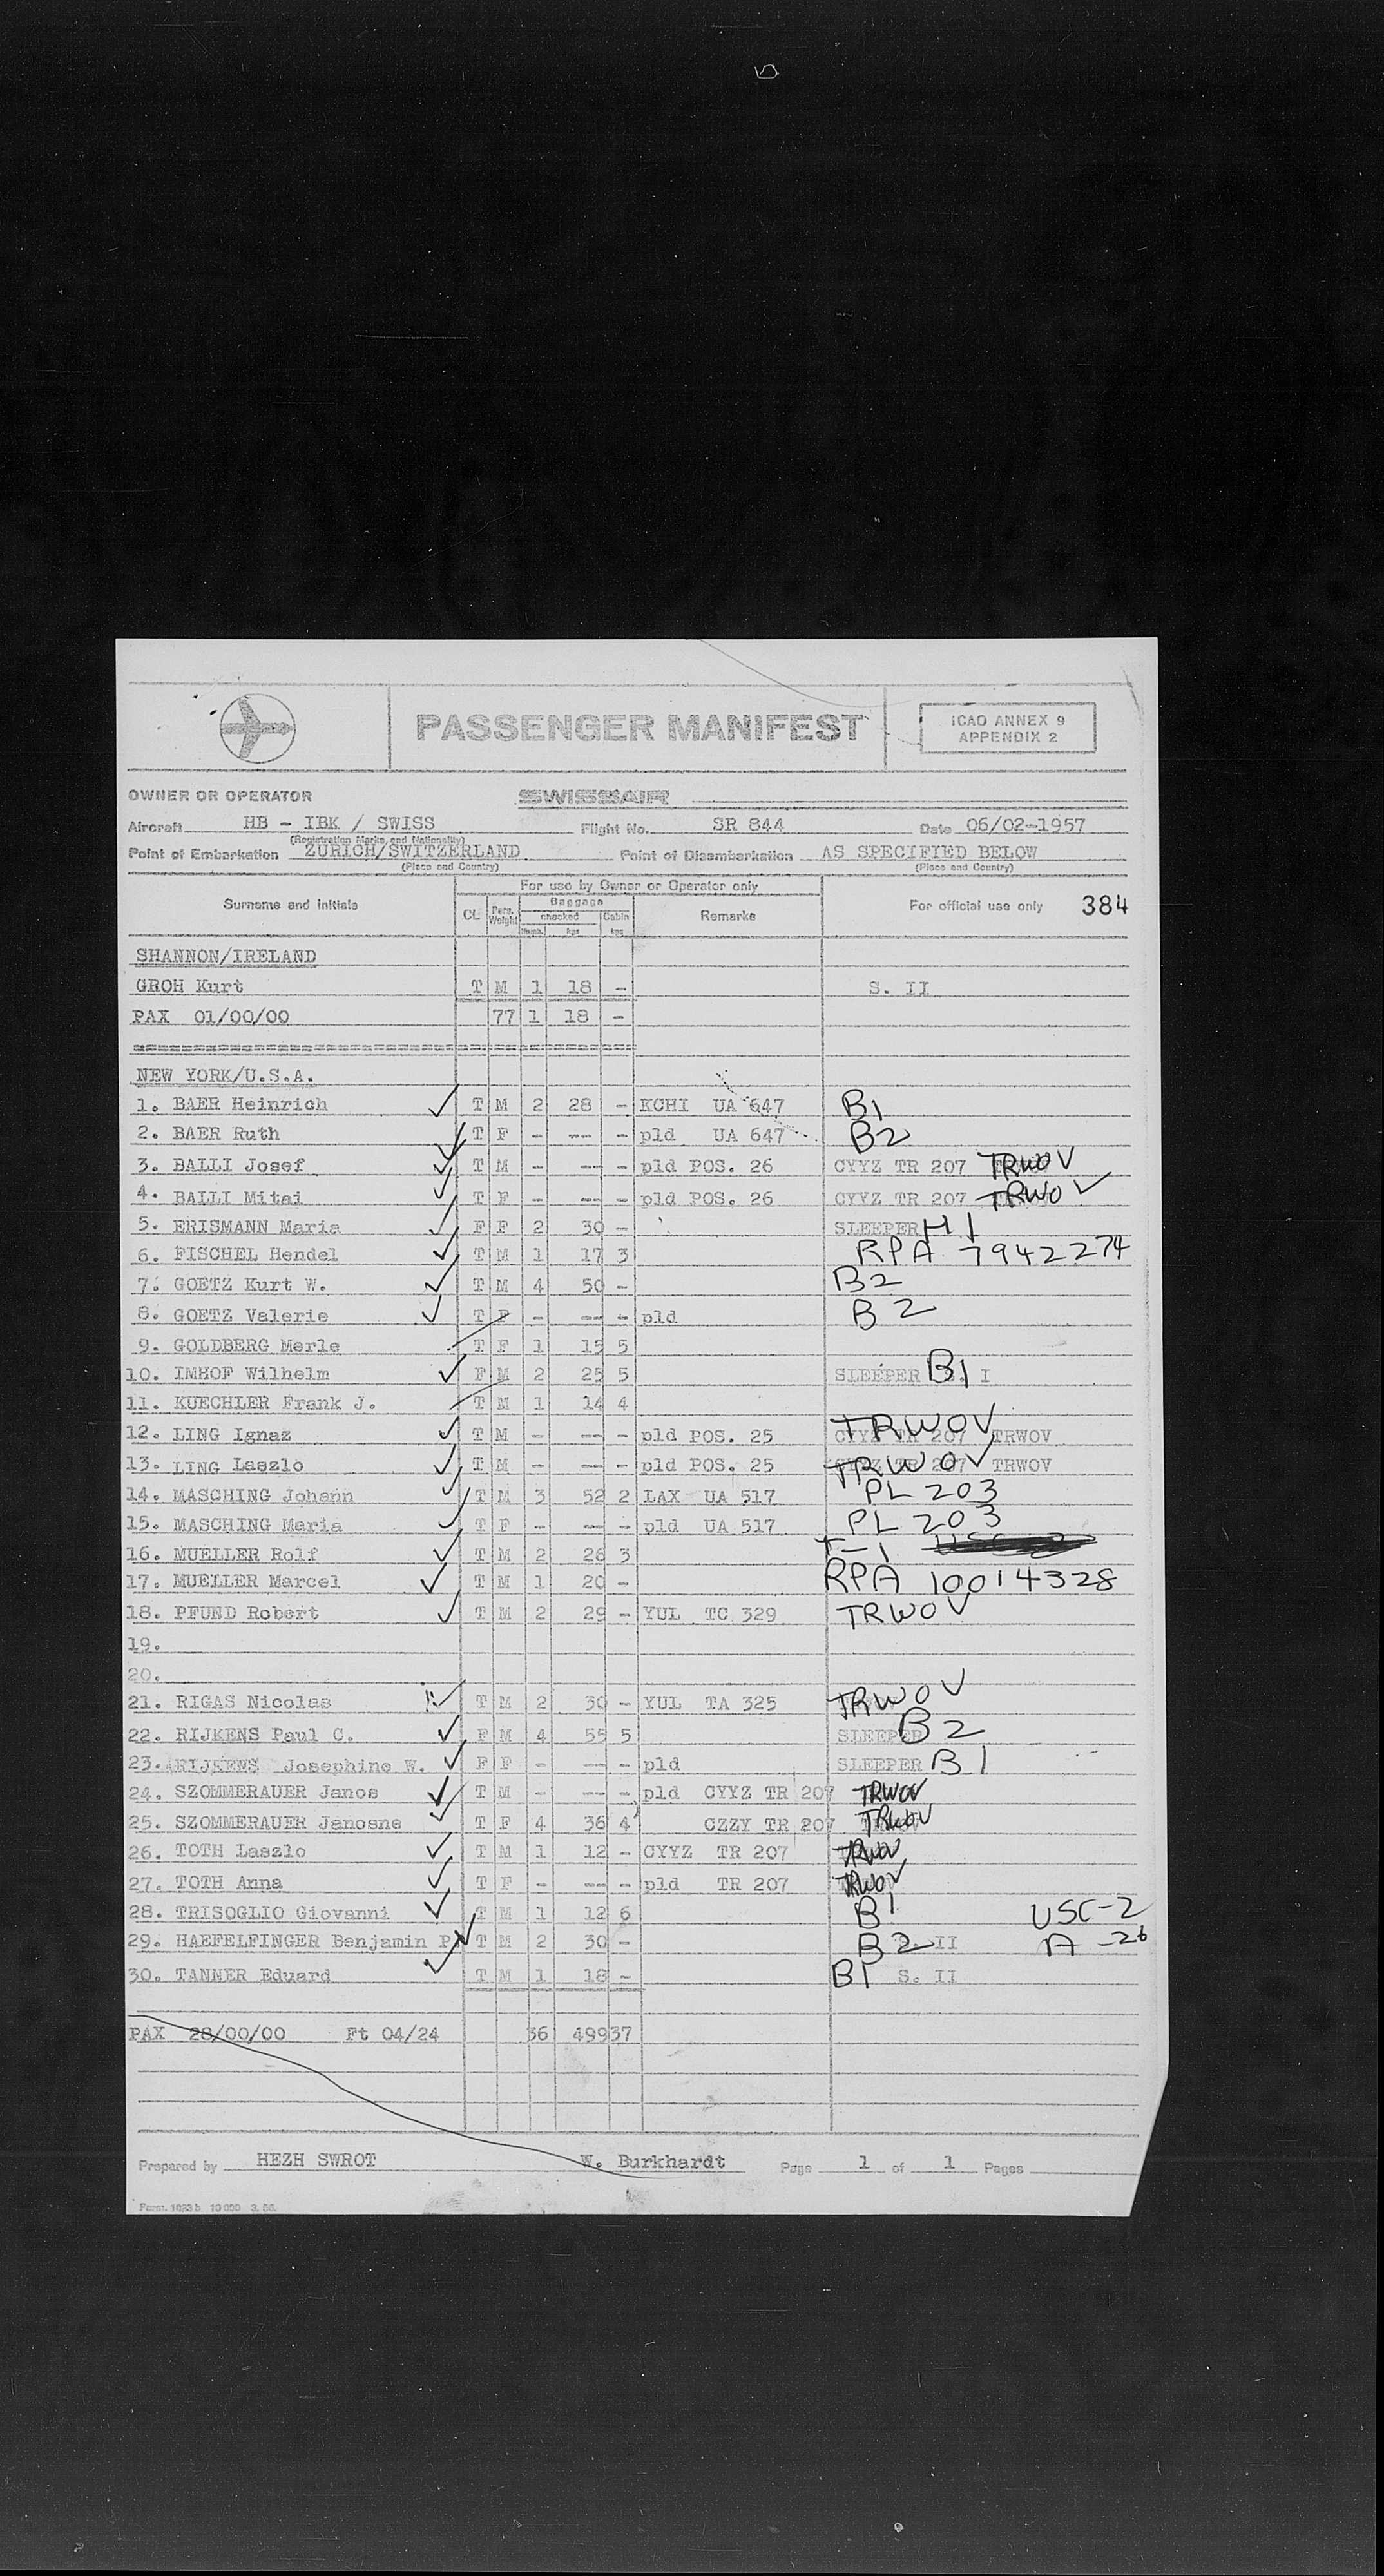 PASSENGER MANIFEST
ICAO ANNEX 9
APPENDIX 2
OWNER OR OPERATOR SWISSAIR
Aircraft HB - IBK / SWISS Flight No. SR 844 Date 06/02-1957
(Registration Marks and Nationality)
Point of Embarkation ZURICH/SWITZERLAND Point of Disembarkation AS SPECIFIED BELOW
(Place and Country) (Place and Country)
For use by Owner or Operator only
Surname and initials CL Pers. Weight Baggage checked Cabin Remarks For official use only 384
Numb. kgs kgs
SHANNON/IRELAND
GROH Kurt T M 1 18 - S. II
PAX 01/00/00 77 1 18 -
NEW YORK/U.S.A.
1. BAER Heinrich T M 2 28 - KCHI UA 647 B1
2. BAER Ruth T F - --- - pld UA 647 B2
3. BALLI Josef T M - --- - pld POS. 26 CYYZ TR 207 TRWOV
4. BALLI Mitzi T F - --- - pld POS. 26 CYYZ TR 207 TRWOV
5. ERISMANN Maria F F 2 30 - SLEEPER H1
6. FISCHEL Hendel T M 1 17 3 RPA 7942274
7. GOETZ Kurt W. T M 4 50 - B2
8. GOETZ Valerie T F - --- - pld B2
9. GOLDBERG Merle T F 1 15 5
10. IMHOF Wilhelm F M 2 25 5 SLEEPER B1 I
11. KUECHLER Frank J. T M 1 14 4
12. LING Ignaz T M - --- - pld POS. 25 CYYZ TR 207 TRWOV TRWOV
13. LING Laszlo T M - --- - pld POS. 25 TR 207 TRWOV TRWOV
14. MASCHING Johann T M 3 52 2 LAX UA 517 PL 203
15. MASCHING Maria T F - --- - pld UA 517 PL 203
16. MUELLER Rolf T M 2 26 3 T-1
17. MUELLER Marcel T M 1 20 - RPA 10014328
18. PFUND Robert T M 2 29 - YUL TC 329 TRWOV
19.
20.
21. RIGAS Nicolas T M 2 30 - YUL TA 325 TRWOV
22. RIJKENS Paul C. F M 4 55 5 SLEEPER B2
23. RIJKENS Josephine W. F F - --- - pld SLEEPER B1
24. SZOMMERAUER Janos T M - --- - pld CYYZ TR 207 TRWOV
25. SZOMMERAUER Janosne T F 4 36 4 CZZY TR 207 TRWOV
26. TOTH Laszlo T M 1 12 - CYYZ TR 207 TRWOV
27. TOTH Anna T F - --- - pld TR 207 TRWOV
28. TRISOGLIO Giovanni T M 1 12 6 B1 USC-2
29. HAEFELFINGER Benjamin P. T M 2 30 - B2 II A-26
30. TANNER Eduard T M 1 18 - B1 S. II
PAX 28/00/00 Ft 04/24 36 499 37
Prepared by HEZH SWROT W. Burkhardt Page 1 of 1 Pages
Form. 1023 b